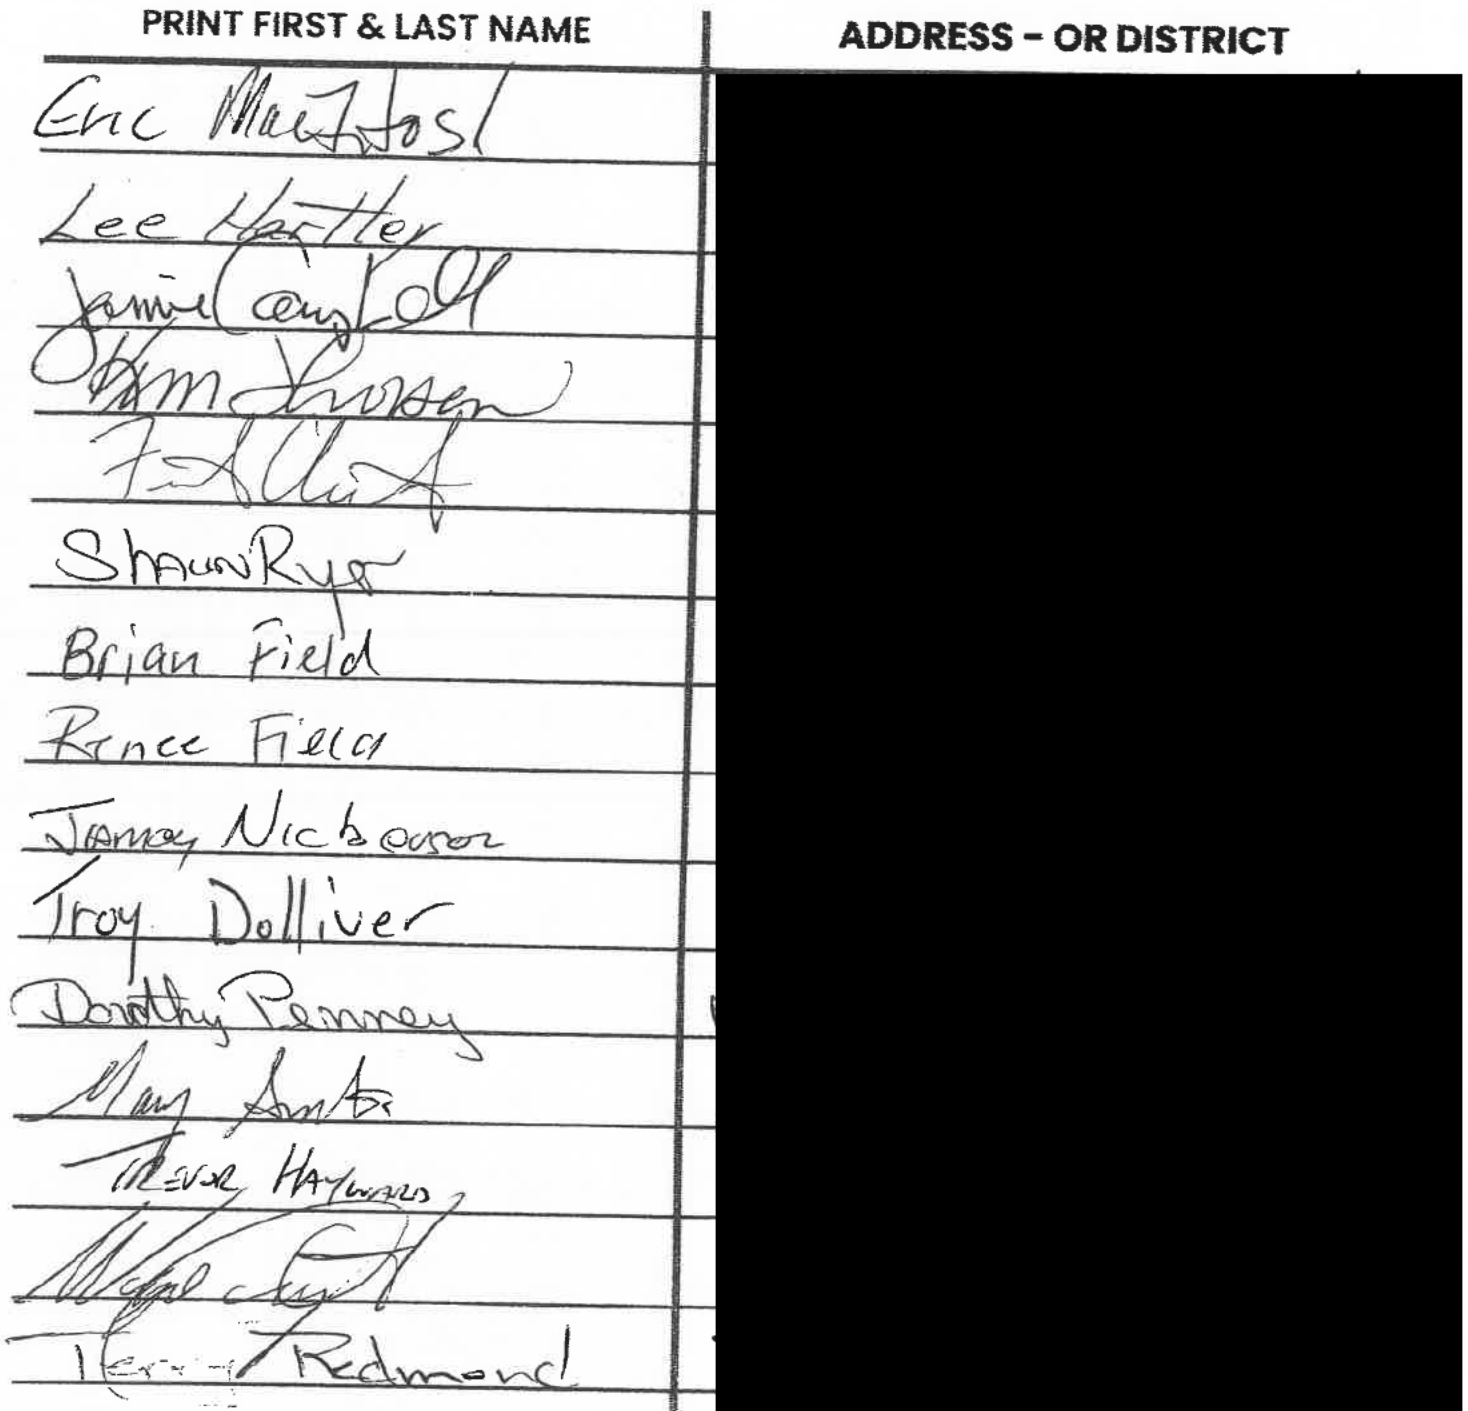 PRINT FIRST & LAST NAME ADDRESS - OR DISTRICT
Eric MacIntosh
Lee Hartler
Jamie Campbell
Kim Thorsen
Shaun Ryer
Brian Field
Renee Field
Jamey Nickerson
Troy Dolliver
Dorothy Penney
Mary
TREVOR HAYWARD
Terry Redmond